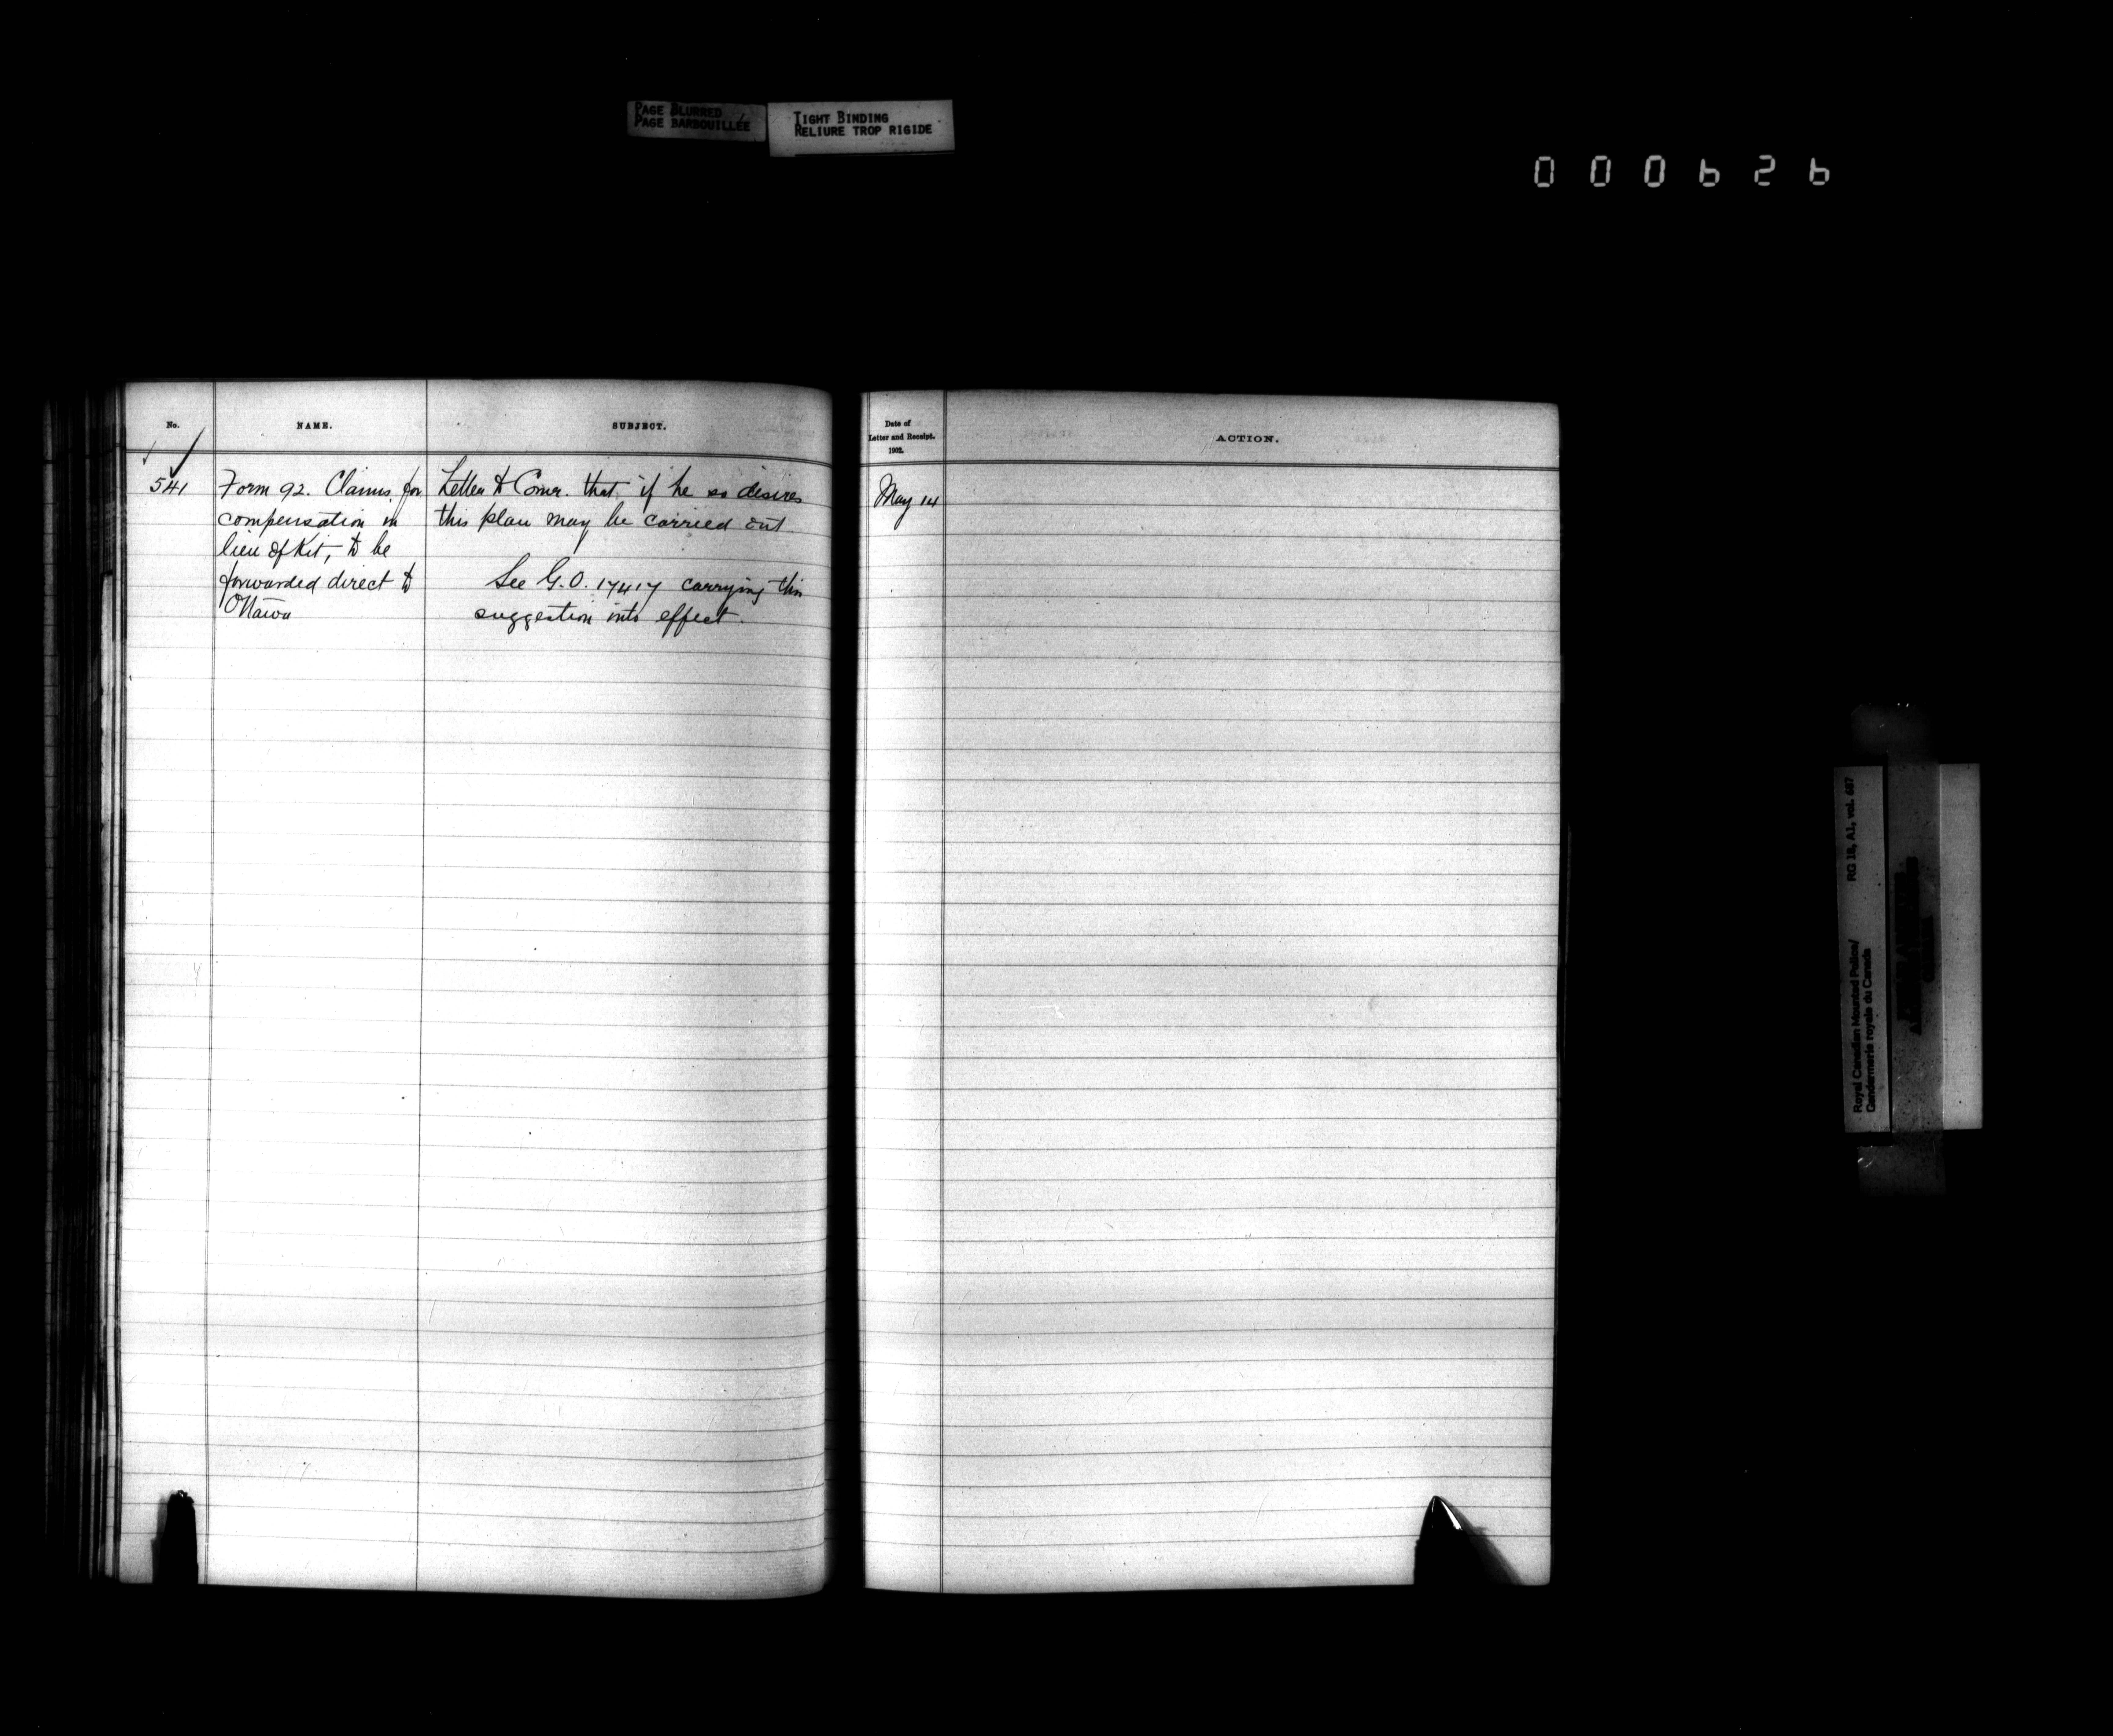 PAGE BLURRED
PAGE BARBOUILLÉE
TIGHT BINDING
RELIURE TROP RIGIDE
000626
No.
NAME.
SUBJECT.
541
Form 92. Claims for
compensation in
lieu of Kit, to be
forwarded direct to
Ottawa
Letter to Comr. that if he so desires
this plan may be carried out
See G.O. 17417 carrying this
suggestion into effect.
Date of
Letter and Receipt.
1902.
ACTION.
May 14
Royal Canadian Mounted Police/
Gendarmerie royale du Canada
RG 18, A1, vol. 687